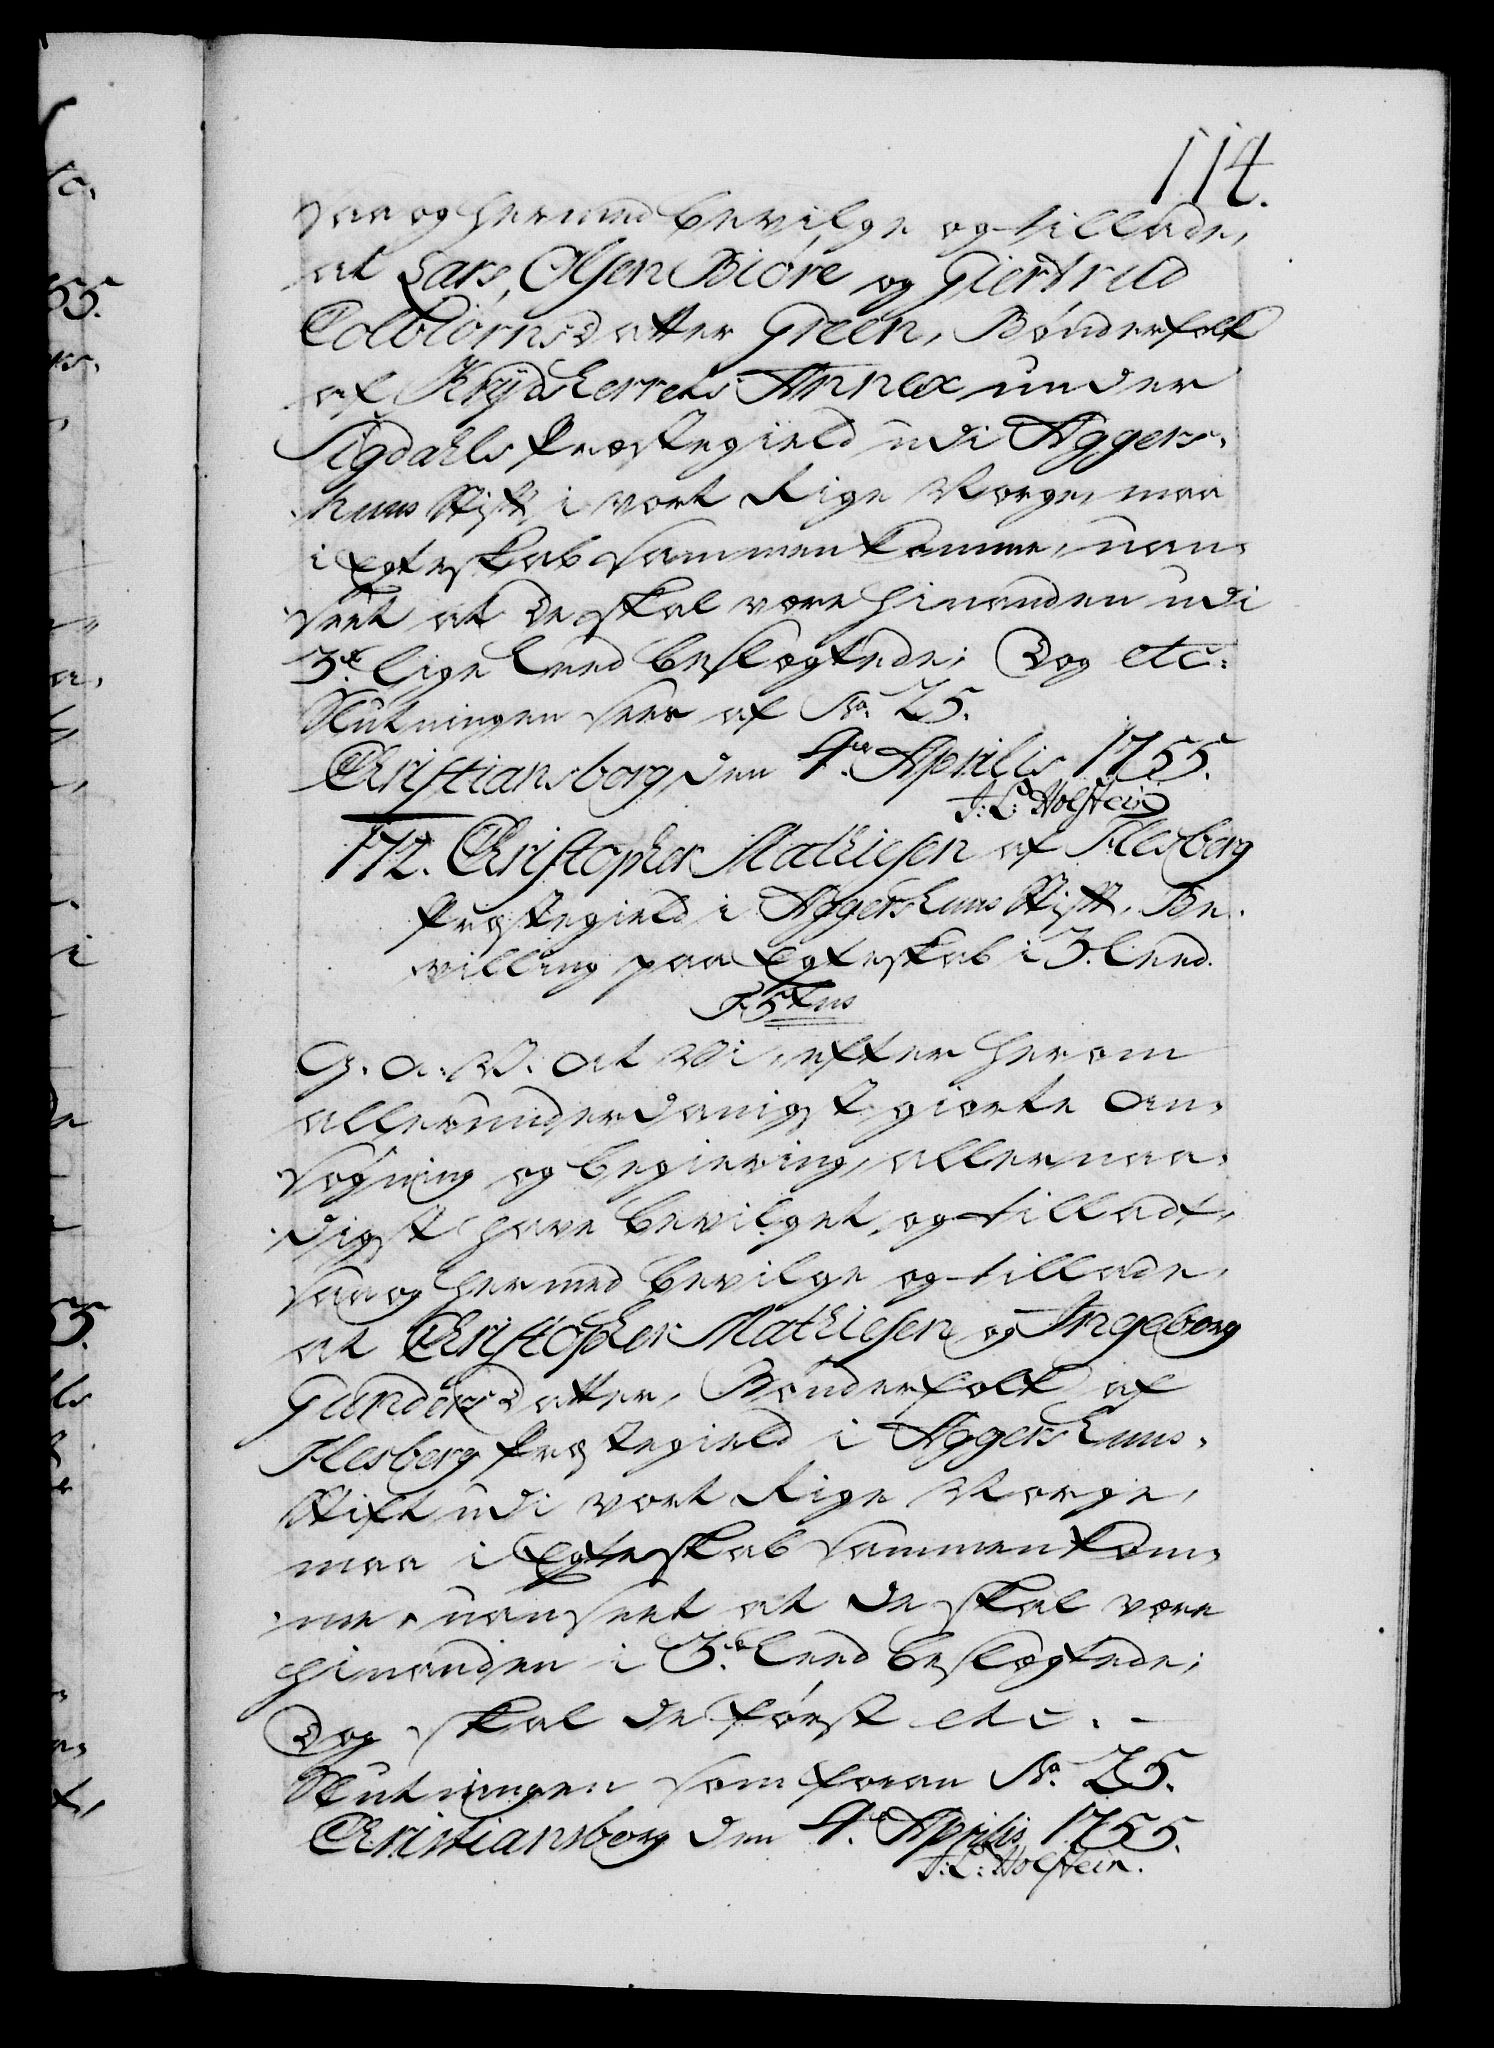 114.
saa og hermed bevilge og tillade,
at Lars Olsen Biøre og Giertrud
Colbiørnsdatter Green, Bønderfolk
af Krydsherrets Annex under
Sigdahls Præstegield udi Aggers-
huus Stift, i vort Rige Norge, maa
i Egteskab sammenkomme, uan-
seet at de skal være hinanden udi
3die lige Leed beslægtede; Dog etc:
Slutningen sees af No. 25.
Christiansborg den 4de Aprilis 1755.
J: L: Holstein
172. Christopher Mathiesen af Flesberg
Præstegield i Aggershuus Stift, Be-
villing paa Egteskab i 3. Leed.
F5tus
G. a. W. at Vi, efter herom
allerunderdanigst giorte An-
søgning og begiering, allernaa-
digst have bevilget, og tilladt,
saa og hermed bevilge og tillade,
at Christopher Mathiesen og Ingeborg
Gundersdatter, Bønderfolk af
Flesberg Præstegield i Aggershuus-
Stift udi vort Rige Norge,
maa i Egteskab sammenkom-
me, uanseet at de skal være
hinanden i 3die Leed beslægtede;
Dog skal de først etc. -
Slutningen som foran No. 25.
Christiansborg den 4de Aprilis 1755.
J: L: Holstein.